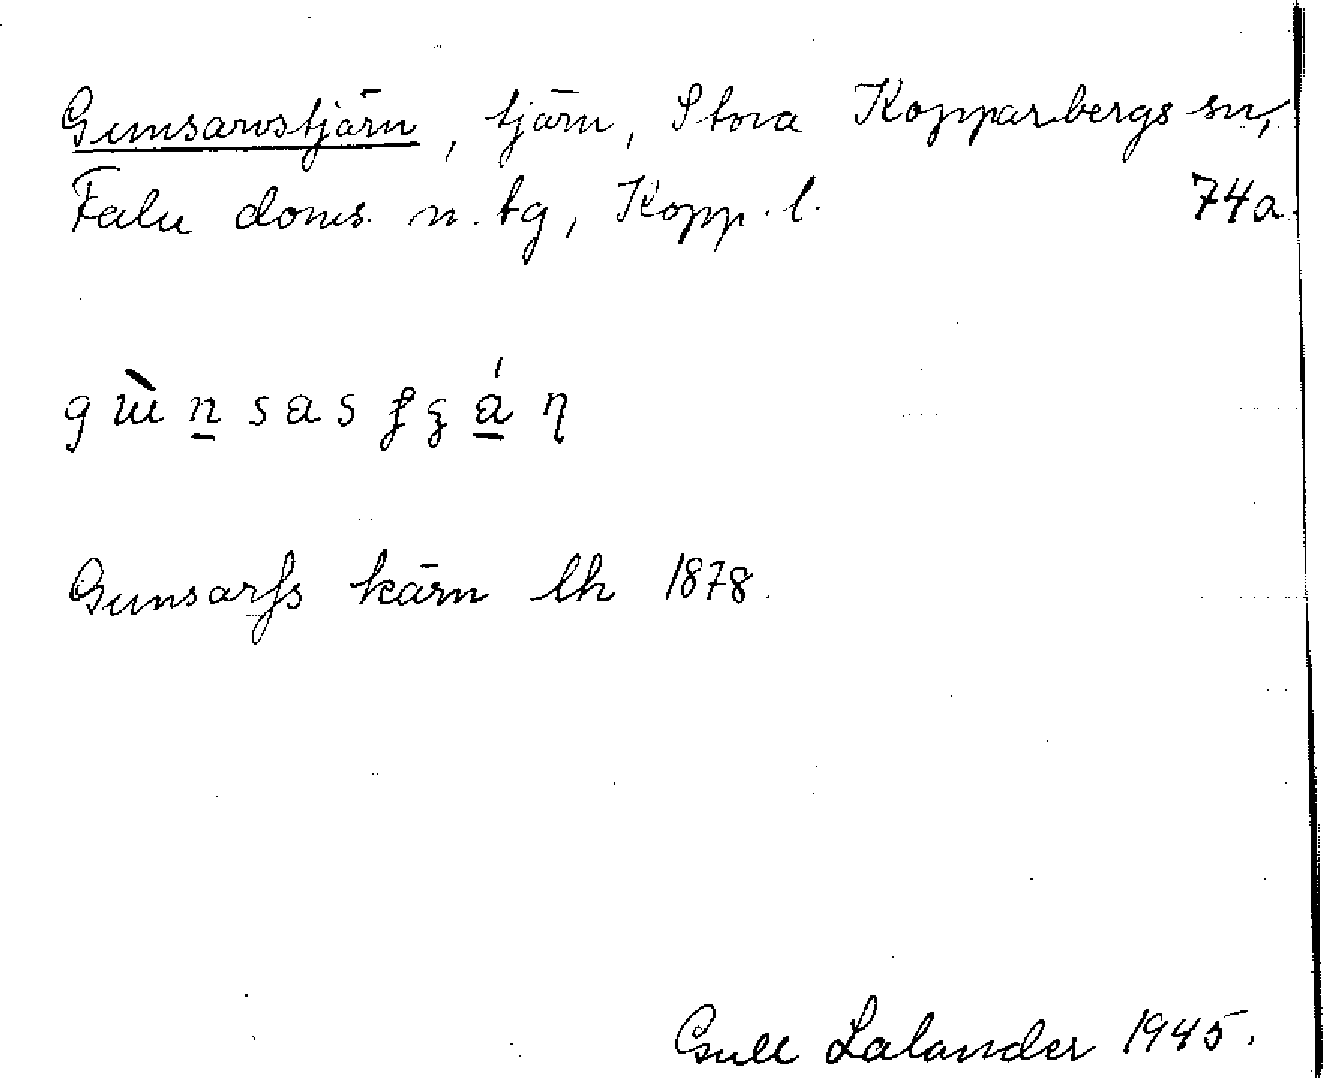 Gunsarvstjärn, tjärn, Stora Kopparbergs sn,
Falu doms. n. tg, Kopp. l. 74a.
Gunsarfs kärn lk 1878.
Gull Lalander 1945.